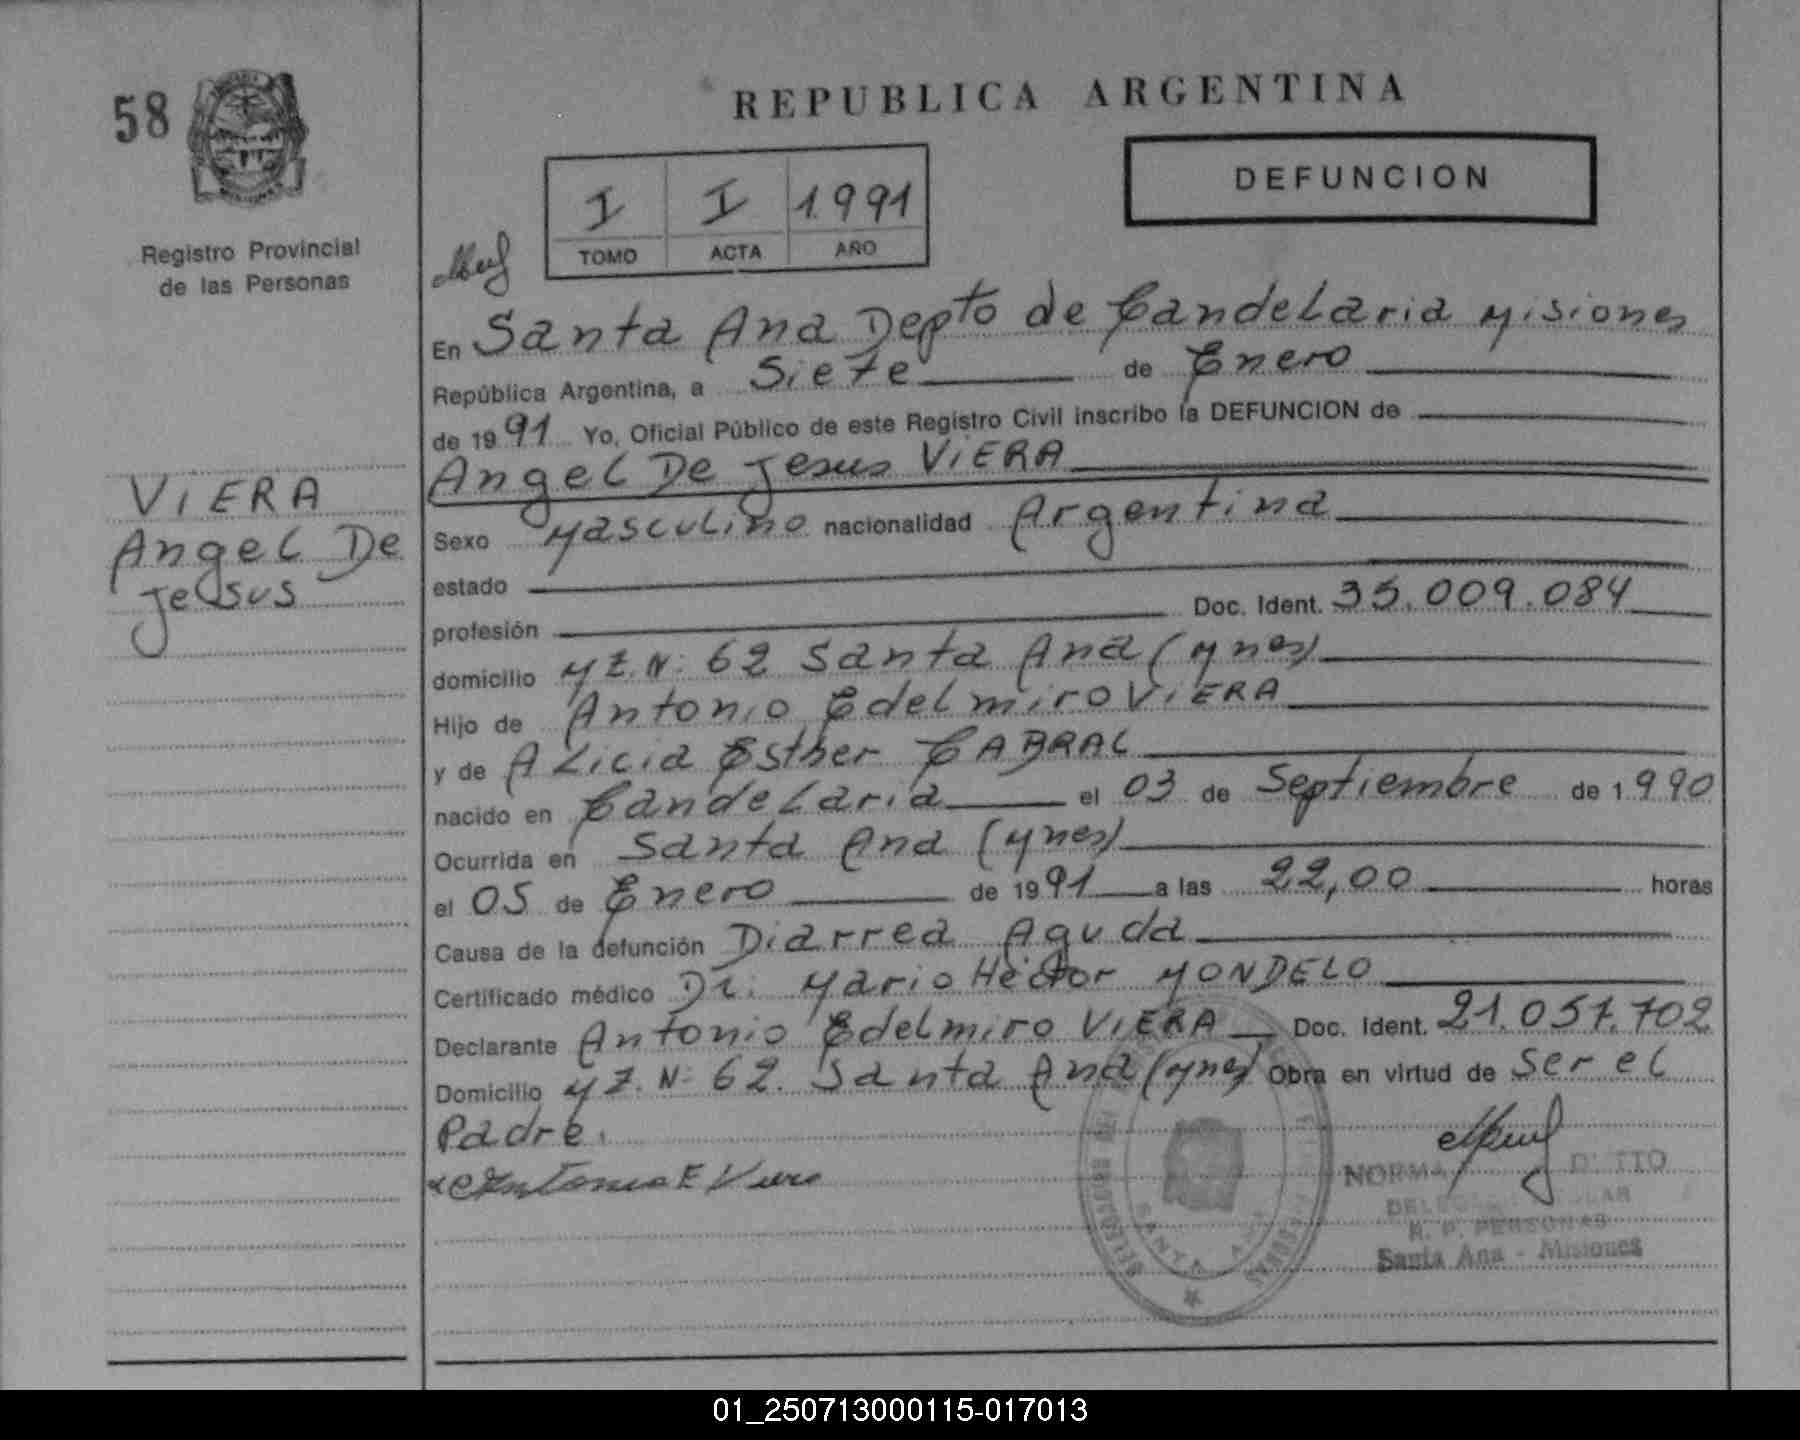 58
REPUBLICA ARGENTINA
DEFUNCION
I I 1991
TOMO ACTA AÑO
Registro Provincial
de las Personas
VIERA
Angel De
Jesus
En Santa Ana Depto de Candelaria Misiones
República Argentina, a Siete de Enero
de 1991 Yo, Oficial Público de este Registro Civil inscribo la DEFUNCION de
Angel De Jesus VIERA
Sexo Masculino nacionalidad Argentina
estado
profesión Doc. Ident. 35.009.084
domicilio MZ. N: 62 Santa Ana (Mnes)
Hijo de Antonio Edelmiro VIERA
y de Alicia Esther CABRAL
nacido en Candelaria el 03 de Septiembre de 1990
Ocurrida en Santa Ana (Mnes)
el 05 de Enero de 1991 a las 22,00 horas
Causa de la defunción Diarrea Aguda
Certificado médico Dr. Mario Héctor MONDELO
Declarante Antonio Edelmiro VIERA Doc. Ident. 21.057.702
Domicilio MZ. N: 62. Santa Ana (Mnes) Obra en virtud de Ser el
Padre.
Antonio E Viera
NORMA
R. P. PERSONAS
Santa Ana - Misiones
SANTA ANA
01_250713000115-017013